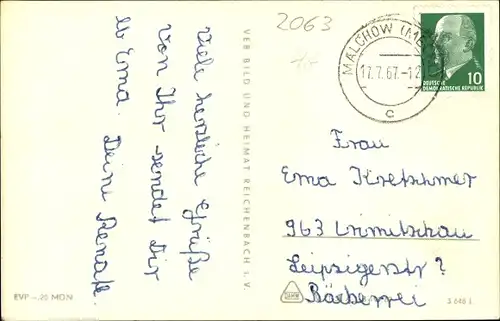 2063
Viele herzliche Grüße
von Ihr sendet Dir
lb Erna. Deine Renate.
VEB BILD UND HEIMAT REICHENBACH i. V.
MALCHOW (ME
17.7.67.-12
c
10
DEUTSCHE
DEMOKRATISCHE REPUBLIK
Frau
Erna Kretschmer
963 Crimitschau
Leipzigerstr ?
Bäckerrei
EVP -.20 MDN